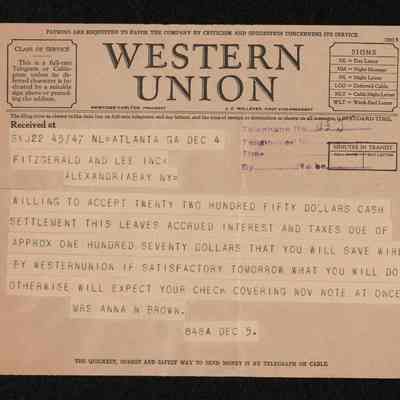 PATRONS ARE REQUESTED TO FAVOR THE COMPANY BY CRITICISM AND SUGGESTION CONCERNING ITS SERVICE
CLASS OF SERVICE
This is a full-rate Telegram or Cablegram unless its deferred character is indicated by a suitable sign above or preceding the address.
WESTERN
UNION
SIGNS
DL = Day Letter
NM = Night Message
NL = Night Letter
LCO = Deferred Cable
NLT = Cable Night Letter
WLT = Week-End Letter
NEWCOMB CARLTON, PRESIDENT
J. C. WILLEVER, FIRST VICE-PRESIDENT
STANDARD TIME.
Received at
Telephone No.
Time
By
To be
MINUTES IN TRANSIT
SYJ22 45/47 NL=ATLANTA GA DEC 4
FITZGERALD AND LEE INC=
ALEXANDRIABAY NY=
WILLING TO ACCEPT TWENTY TWO HUNDRED FIFTY DOLLARS CASH
SETTLEMENT THIS LEAVES ACCRUED INTEREST AND TAXES DUE OF
APPROX ONE HUNDRED SEVENTY DOLLARS THAT YOU WILL SAVE WIRE
BY WESTERNUNION IF SATISFACTORY TOMORROW WHAT YOU WILL DO
OTHERWISE WILL EXPECT YOUR CHECK COVERING NOV NOTE AT ONCE
MRS ANNA N BROWN.
848A DEC 5.
THE QUICKEST, SUREST AND SAFEST WAY TO SEND MONEY IS BY TELEGRAPH OR CABLE